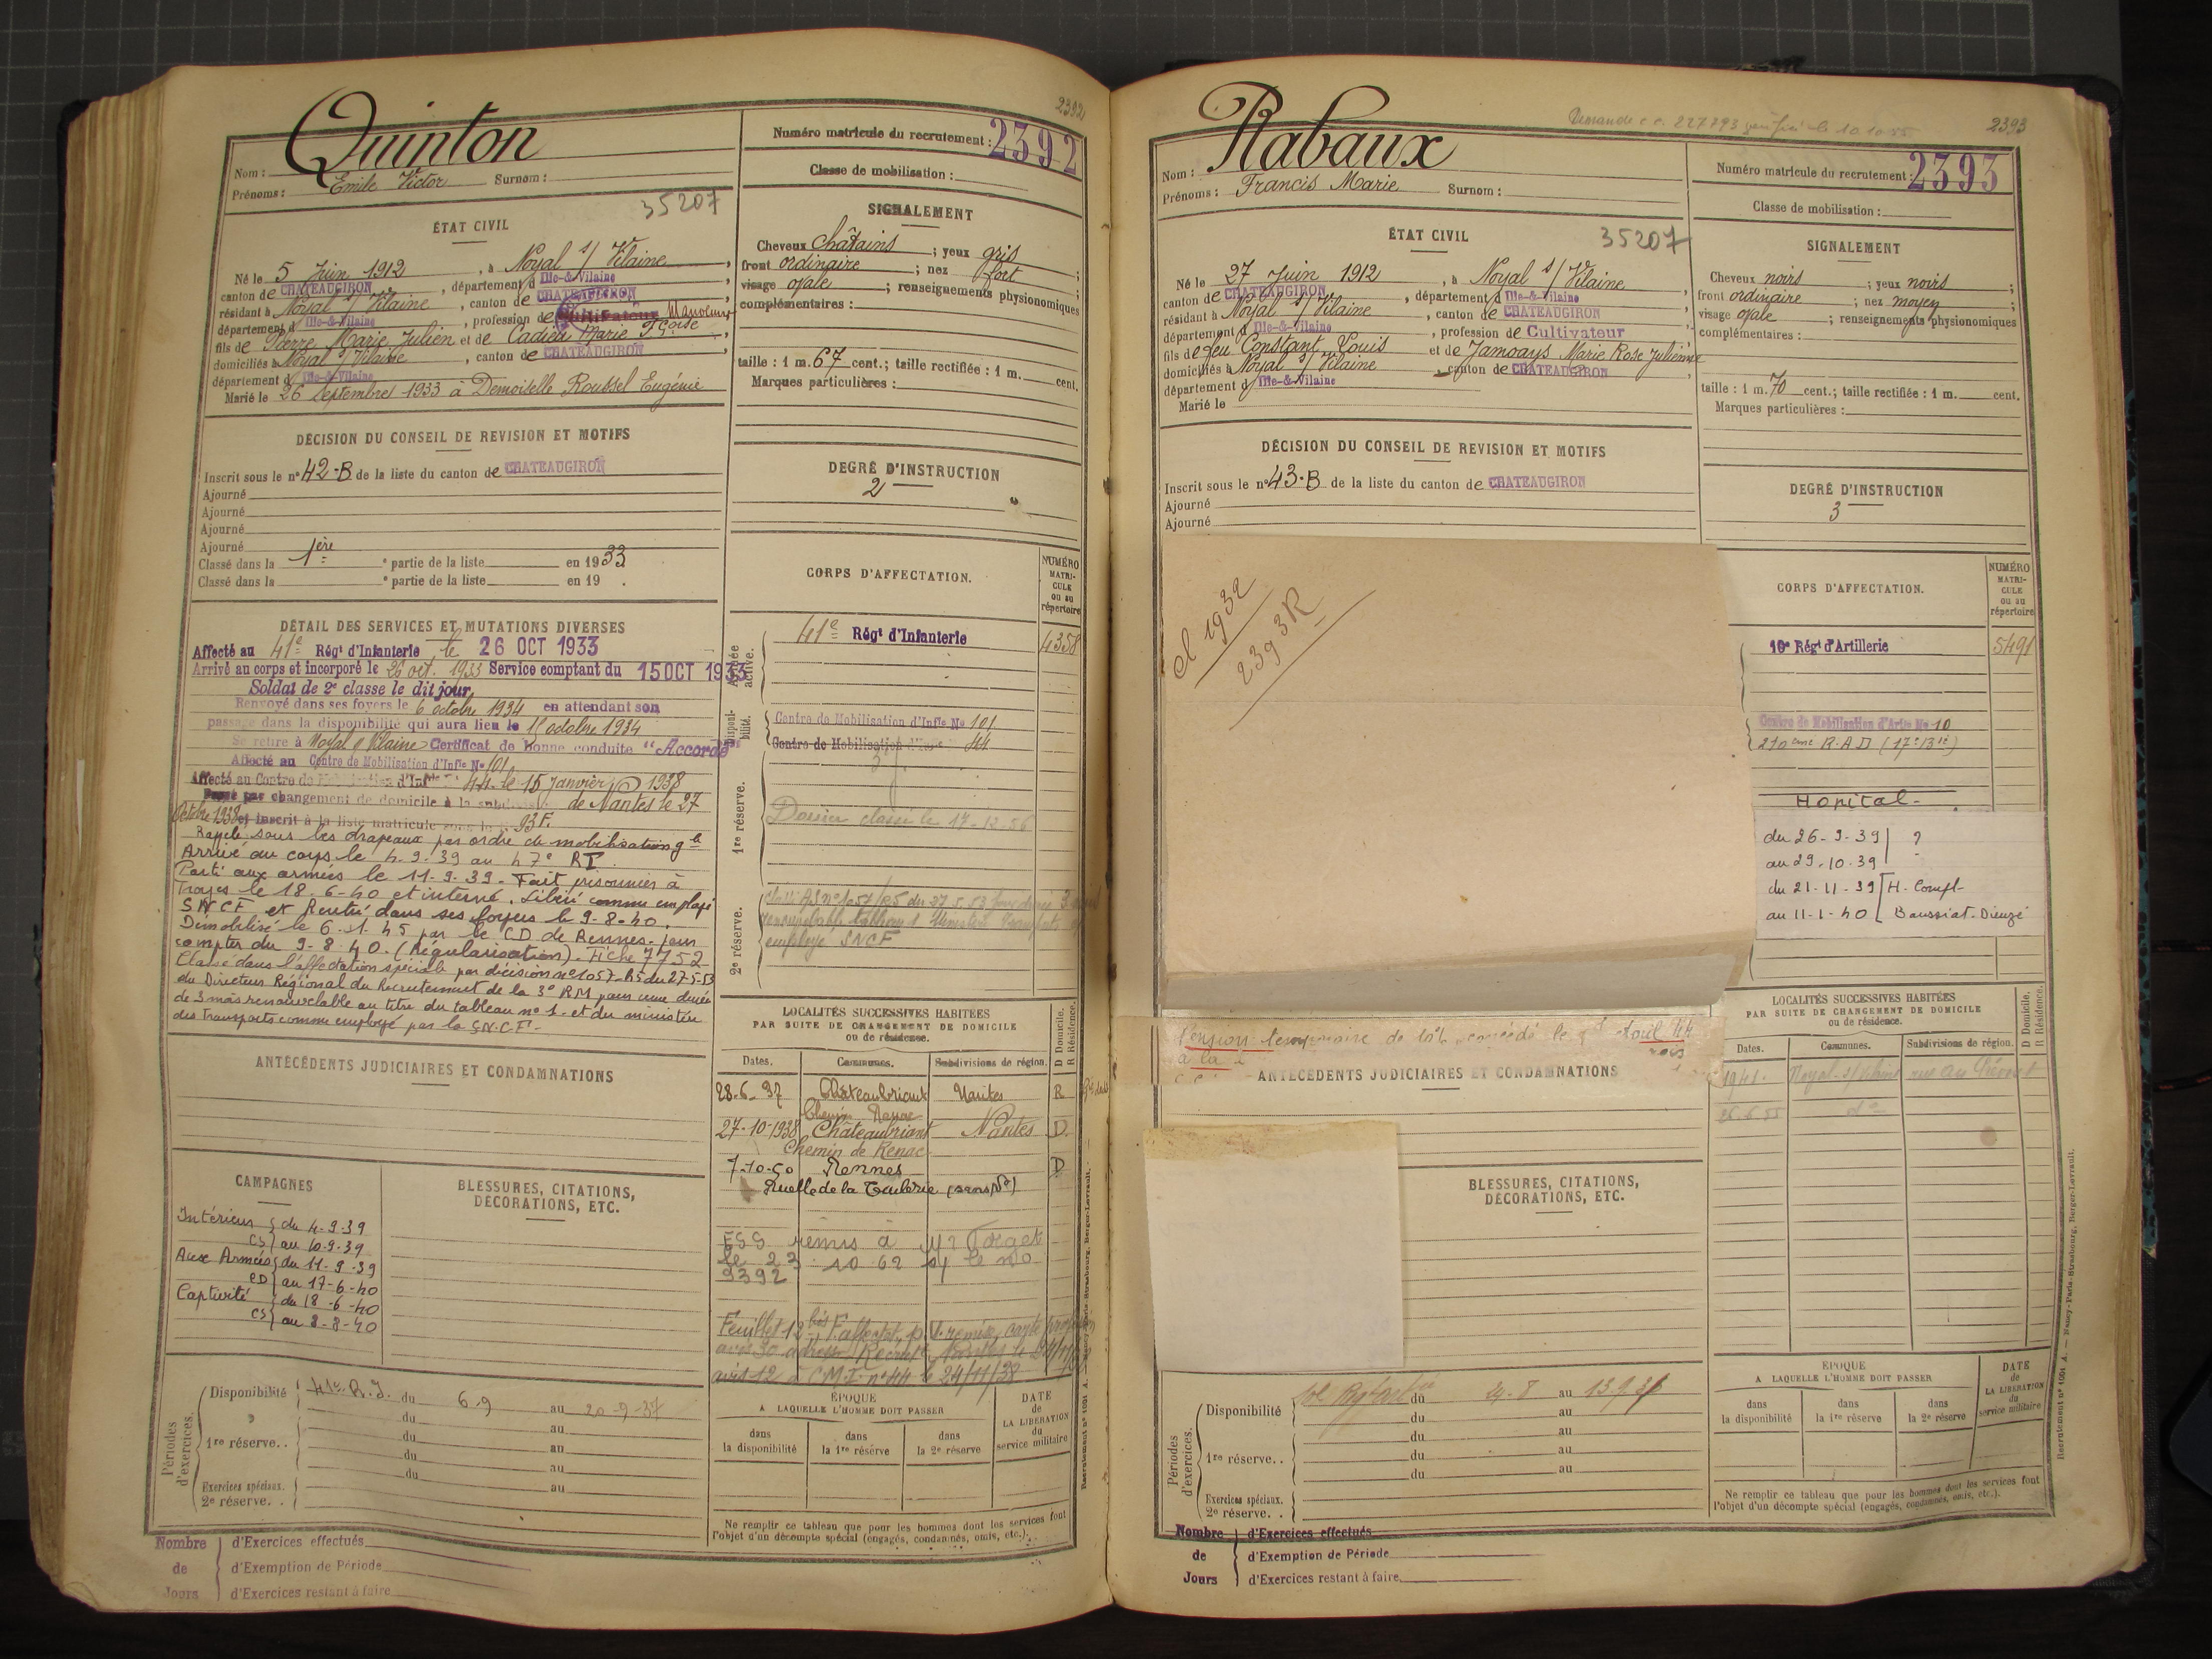 2392
Quinton
Nom :
Prénoms : Emile Victor Surnom :
Numéro matricule du recrutement : 2392
Classe de mobilisation :
35207
ÉTAT CIVIL
Né le 5 Juin 1912, à Noyal s/ Vilaine,
canton de CHATEAUGIRON, département d Ille-&-Vilaine
résidant à Noyal s/ Vilaine, canton de CHATEAUGIRON,
département d Ille-&-Vilaine, profession de Cultivateur Manoeuvre
fils de Pierre Marie Julien et de Cadieu Marie Fçoise
domiciliés à Noyal s/ Vilaine, canton de CHATEAUGIRON,
département d Ille-&-Vilaine
Marié le 26 Septembre 1933 à Demoiselle Roussel Eugénie
SIGNALEMENT
Cheveux châtains ; yeux gris ;
front ordinaire ; nez fort ;
visage ovale ; renseignements physionomiques
complémentaires :
taille : 1 m. 67 cent. ; taille rectifiée : 1 m. cent.
Marques particulières :
DÉCISION DU CONSEIL DE REVISION ET MOTIFS
Inscrit sous le n° 42-B de la liste du canton de CHATEAUGIRON
Ajourné
Ajourné
Ajourné
Ajourné
Classé dans la 1ère partie de la liste en 1933
Classé dans la e partie de la liste en 19 .
DEGRÉ D'INSTRUCTION
2
DÉTAIL DES SERVICES ET MUTATIONS DIVERSES
Affecté au 41e Régt d'Infanterie le 26 OCT 1933
Arrivé au corps et incorporé le 26 oct. 1933 Service comptant du 15 OCT 1933
Soldat de 2e classe le dit jour
Renvoyé dans ses foyers le 6 octobre 1934 en attendant son
passage dans la disponibilité qui aura lieu le 15 octobre 1934
Se retire à Noyal s/ Vilaine Certificat de bonne conduite "Accordé"
Affecté au Centre de Mobilisation d'Infie No 101
Affecté au Centre de Mobilisation d'Infie 44 le 15 Janvier 1938
Passé par changement de domicile à la subdivision de Nantes le 27
Octobre 1938 et inscrit à la liste matricule sous le n° 93 F.
Rappelé sous les drapeaux par ordre de mobilisation gle
Arrivé au corps le 4-9-39 au 47e RI
Parti aux armées le 11-9-39 - Fait prisonnier à
Troyes le 18-6-40 et interné. Libéré comme employé
SNCF et Rentré dans ses foyers le 9-8-40.
Démobilisé le 6-1-45 par le CD de Rennes - pour
compter du 9-8-40. (Régularisation). Fiche 7752
Classé dans l'affectation spéciale par décision n° 1057-R5 du 27-5-53
du Directeur Régional du Recrutement de la 3e RM pour une durée
de 3 mois renouvelable au titre du tableau n° 1 et du ministère
des Transports comme employé par la SNCF -
CORPS D'AFFECTATION.
NUMÉRO MATRICULE ou au répertoire
Armée active.
41e Régt d'Infanterie 4358
Disponibilité.
Centre de Mobilisation d'Infie No 101
Centre de Mobilisation d'Infie 44
1re réserve.
Dossier classé le 17-12-56
2e réserve.
employé SNCF
ANTÉCÉDENTS JUDICIAIRES ET CONDAMNATIONS
LOCALITÉS SUCCESSIVES HABITÉES
PAR SUITE DE CHANGEMENT DE DOMICILE
ou de résidence.
D Domicile. R Résidence.
Dates. Communes. Subdivisions de région.
28-6-37 Châteaubriant Nantes R
Chemin Renac
27-10-1938 Châteaubriant Nantes D.
Chemin de Renac
7-10-50 Rennes D
Ruelle de la Tuilerie (sans No)
FSS remis à Mr Forget
le 23 10 62 s/ le no
2392
avis 12 à C.M.I. n° 44 le 24/11/38
CAMPAGNES
Intérieur du 4-9-39
CS au 10-9-39
Aux Armées du 11-9-39
CD au 17-6-40
Captivité du 18-6-40
CS au 8-8-40
BLESSURES, CITATIONS,
DÉCORATIONS, ETC.
Périodes d'exercices.
Disponibilité 41e R.I. du 6-9 au 20-9-37
du au
1re réserve. . du au
du au
du au
Exercices spéciaux. au
2e réserve. .
ÉPOQUE
A LAQUELLE L'HOMME DOIT PASSER
dans la disponibilité
dans la 1re réserve
dans la 2e réserve
DATE de LA LIBÉRATION du service militaire
Ne remplir ce tableau que pour les hommes dont les services font
l'objet d'un décompte spécial (engagés, condamnés, omis, etc.).
Nombre de Jours
d'Exercices effectués
d'Exemption de Période
d'Exercices restant à faire
2393
Rabaux
Nom :
Prénoms : Francis Marie Surnom :
Numéro matricule du recrutement : 2393
Classe de mobilisation :
35207
ÉTAT CIVIL
Né le 27 Juin 1912, à Noyal s/ Vilaine
canton de CHATEAUGIRON, département d Ille-&-Vilaine
résidant à Noyal s/ Vilaine, canton de CHATEAUGIRON
département d Ille-&-Vilaine, profession de Cultivateur
fils de feu Constant Louis et de Jamoays Marie Rose Julienne
domiciliés à Noyal s/ Vilaine, canton de CHATEAUGIRON,
département d Ille-&-Vilaine
Marié le
SIGNALEMENT
Cheveux noirs ; yeux noirs ;
front ordinaire ; nez moyen ;
visage ovale ; renseignements physionomiques
complémentaires :
taille : 1 m. 70 cent. ; taille rectifiée : 1 m. cent.
Marques particulières :
DÉCISION DU CONSEIL DE REVISION ET MOTIFS
Inscrit sous le n° 43-B de la liste du canton de CHATEAUGIRON
Ajourné
Ajourné
DEGRÉ D'INSTRUCTION
3
cl 1932
2393 R
CORPS D'AFFECTATION.
NUMÉRO MATRICULE ou au répertoire
10e Régt d'Artillerie 5491
Centre de Mobilisation d'Artie No 10
210ème R.A.D (17e Bie)
Hopital -
du 26-9-39 ?
au 29-10-39
du 21-11-39 H. Compl-
au 11-1-40 Baussiat-Dieuze
Pension temporaire de 10%
ANTÉCÉDENTS JUDICIAIRES ET CONDAMNATIONS
LOCALITÉS SUCCESSIVES HABITÉES
PAR SUITE DE CHANGEMENT DE DOMICILE
ou de résidence.
D Domicile. R Résidence.
Dates. Communes. Subdivisions de région.
1941. Noyal-s/Vilaine
BLESSURES, CITATIONS,
DÉCORATIONS, ETC.
Périodes d'exercices.
Disponibilité du 24-8 au
du au
du au
1re réserve. . du au
du au
Exercices spéciaux.
2e réserve. .
ÉPOQUE
A LAQUELLE L'HOMME DOIT PASSER
dans la disponibilité
dans la 1re réserve
dans la 2e réserve
DATE de LA LIBÉRATION du service militaire
Ne remplir ce tableau que pour les hommes dont les services font
l'objet d'un décompte spécial (engagés, condamnés, omis, etc.).
Nombre de Jours
d'Exercices effectués
d'Exemption de Période
d'Exercices restant à faire